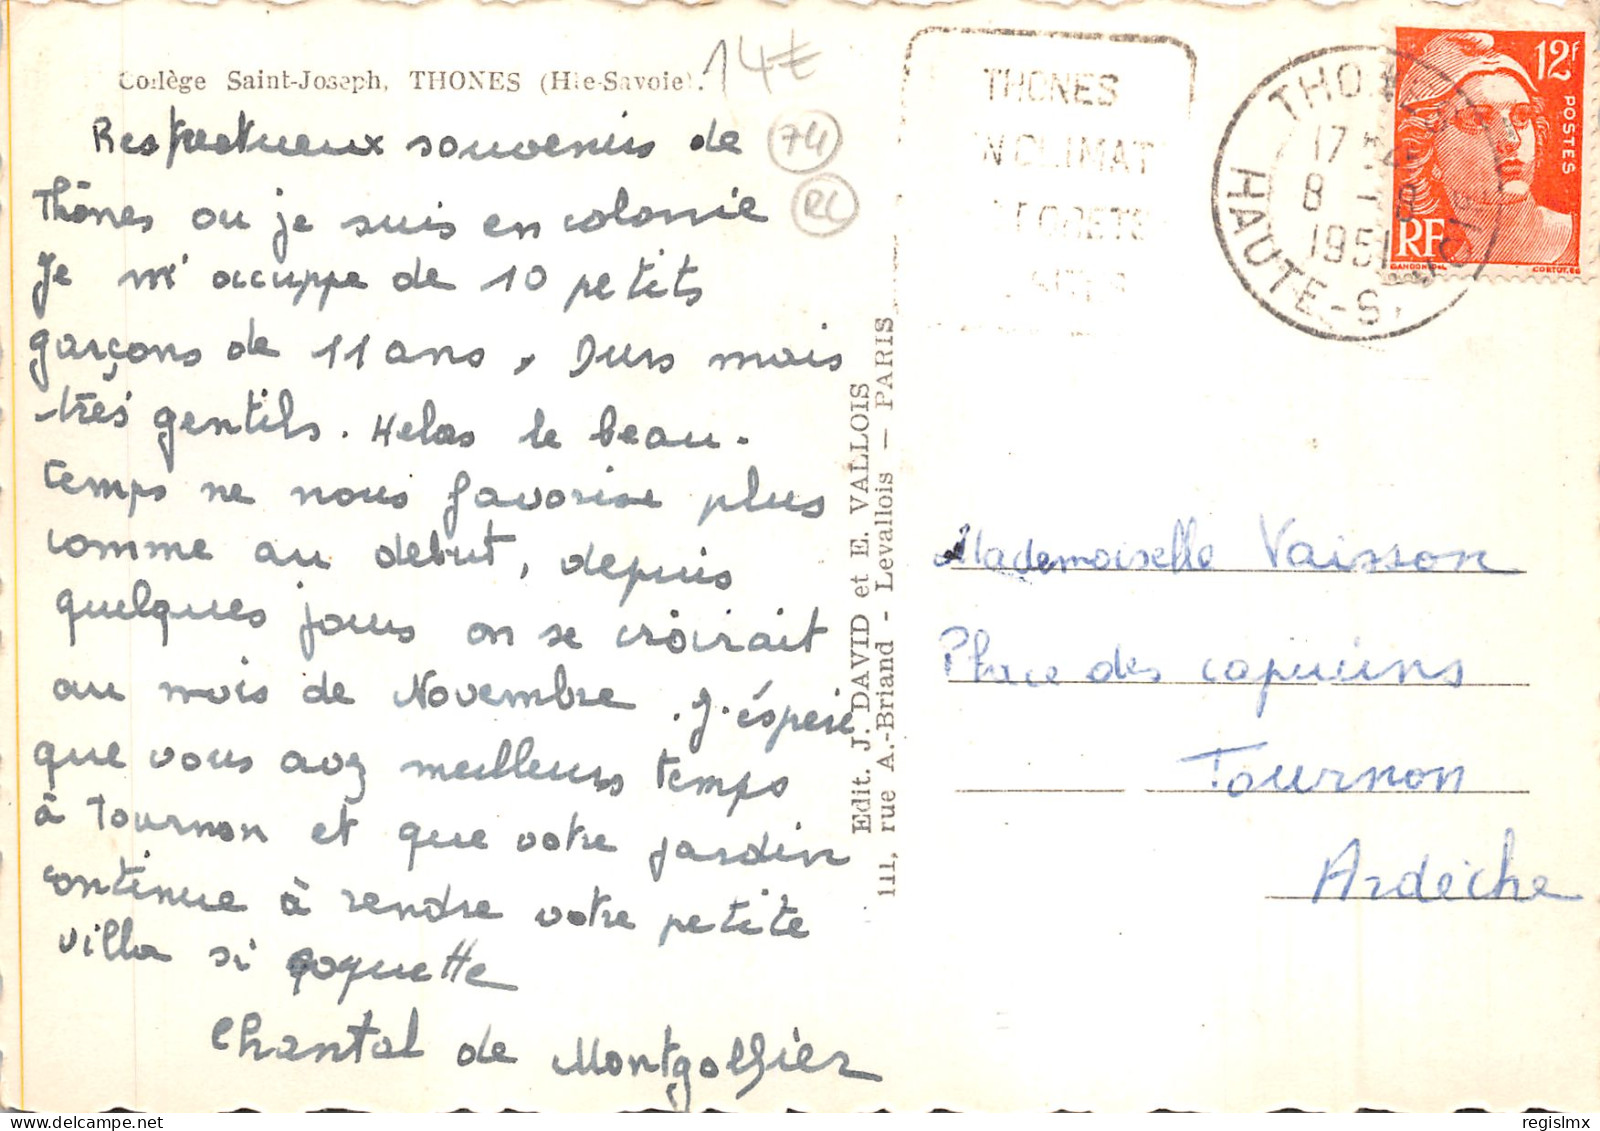 Collège Saint-Joseph, THONES (Hte-Savoie).
14€
74
RL
Respectueux souvenirs de
Thônes ou je suis en colonie
Je m'occuppe de 10 petits
garçons de 11 ans, Durs mais
très gentils. Helas le beau-
temps ne nous favorise plus
comme au debut, depuis
quelques jours on se croirait
au mois de Novembre. J'éspere
que vous avez meilleurs temps
à Tournon et que votre jardin
continue à rendre votre petite
villa si coquette
Chantal de Montgolfier
Edit. J. DAVID et E. VALLOIS
111, rue A.-Briand - Levallois — PARIS
THONES
N CLIMAT
THONES
17
8 - 8
1951
HAUTE-SAVOIE
12f
POSTES
RF
GANDON DEL.
CORTOT. SC
Mademoiselle Vaisson
Place des capucins
Tournon
Ardèche
regislmx